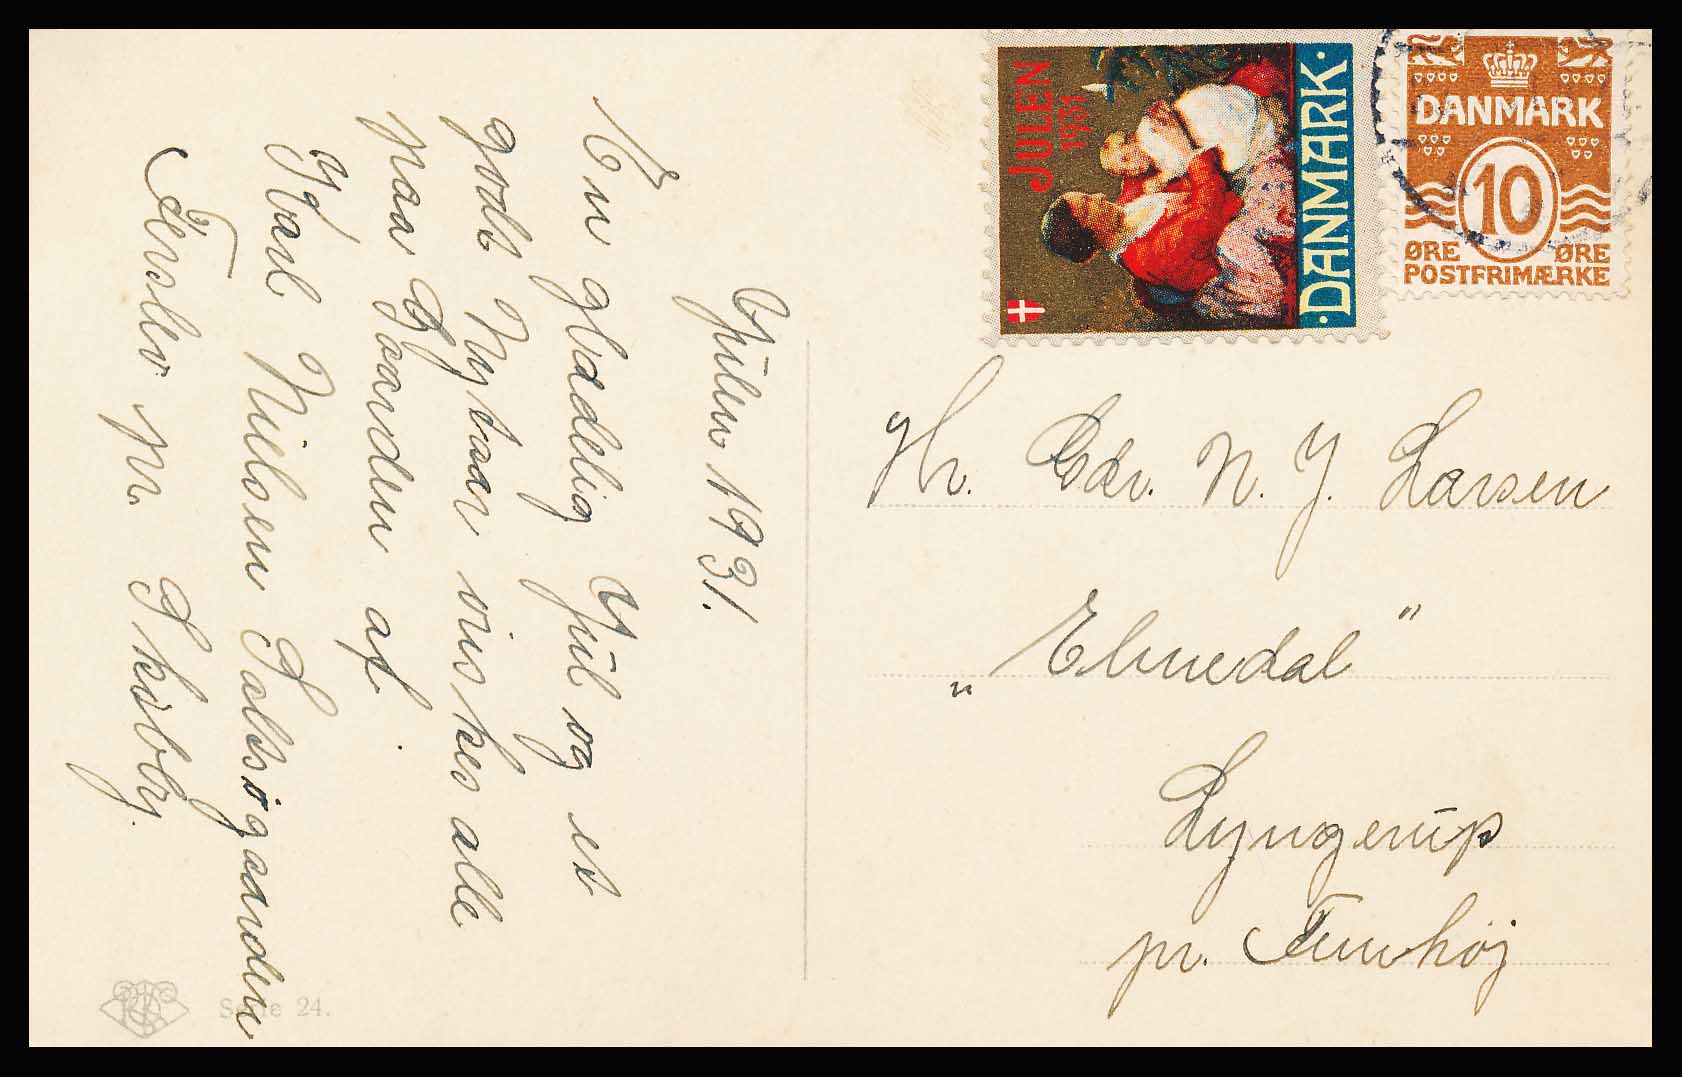 Julen 1931.
En glædelig Jul og et
godt Nytaar ønskes alle
paa Gaarden af
Karl Nielsen Solsøgaarden
Ferslev pr. Skibby.
Serie 24.
JULEN
1931
·DANMARK·
DANMARK
10
ØRE ØRE
POSTFRIMÆRKE
Hr. Gdr. N. J. Larsen
„Elmedal"
Lyngerup
pr. Tunhøj